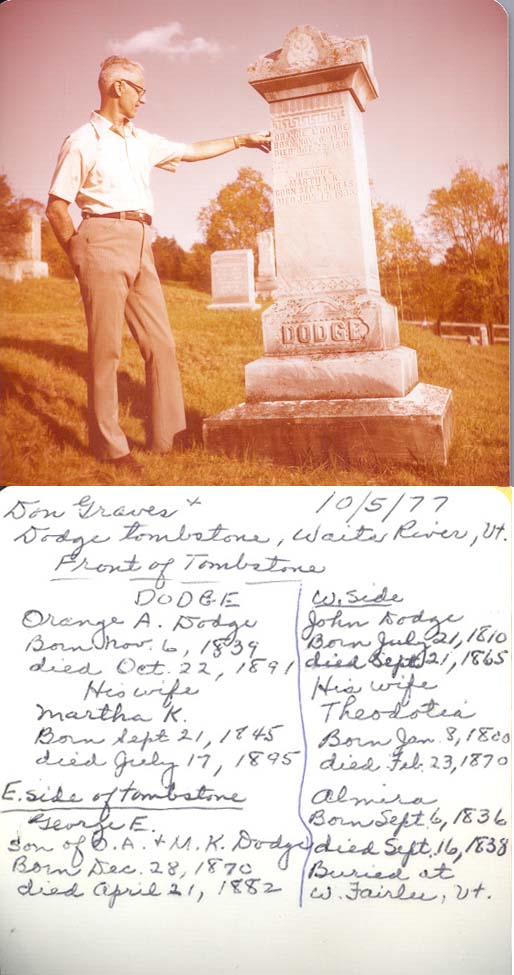 DODGE
Don Graves +
10/5/77
Dodge tombstone, Waits River, Vt.
Front of Tombstone
DODGE
Orange A. Dodge
Born Nov. 6, 1839
died Oct. 22, 1891
His wife
Martha K.
Born Sept 21, 1845
died July 17, 1895
E. side of tombstone
George E.
son of O.A. + M.K. Dodge
Born Dec. 28, 1870
died April 21, 1882
W. Side
John Dodge
Born July 21, 1810
died Sept 21, 1865
His wife
Theodotia
Born Jan. 8, 1800
died Feb. 23, 1870
Almira
Born Sept. 6, 1836
died Sept. 16, 1838
Buried at
W. Fairlee, Vt.